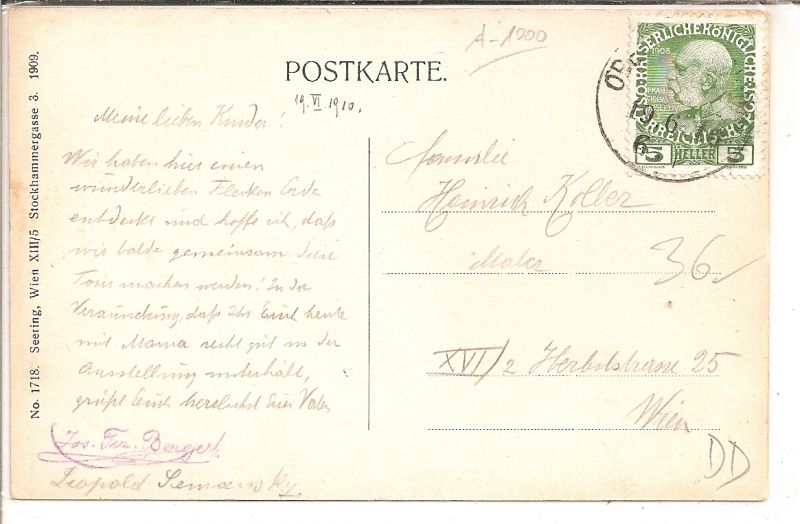 A-1900
POSTKARTE.
19. VI 1910.
No. 1718. Seering, Wien XIII/5 Stockhammergasse 3. 1909.
Meine lieben Kinder!
Wir haben hier einen
wunderlieben Flecken Erde
entdeckt und hoffe ich, daß
wir balde gemeinsam diese
Tour machen werden! In der
daß Ihr Euch heute
mit Mama recht gut in der
Ausstellung unterhält,
grüßt Euch herzlichst Euer Vater
Jos. Frz.
Leopold
KAISERLICHEKÖNIGLICHE
1908
ÖSTERREICHISCHE
5 HELLER 5
19.6.
Familie
Heinrich Koller
Maler
36
XVI/2 Herbststrasse 25
Wien
DD